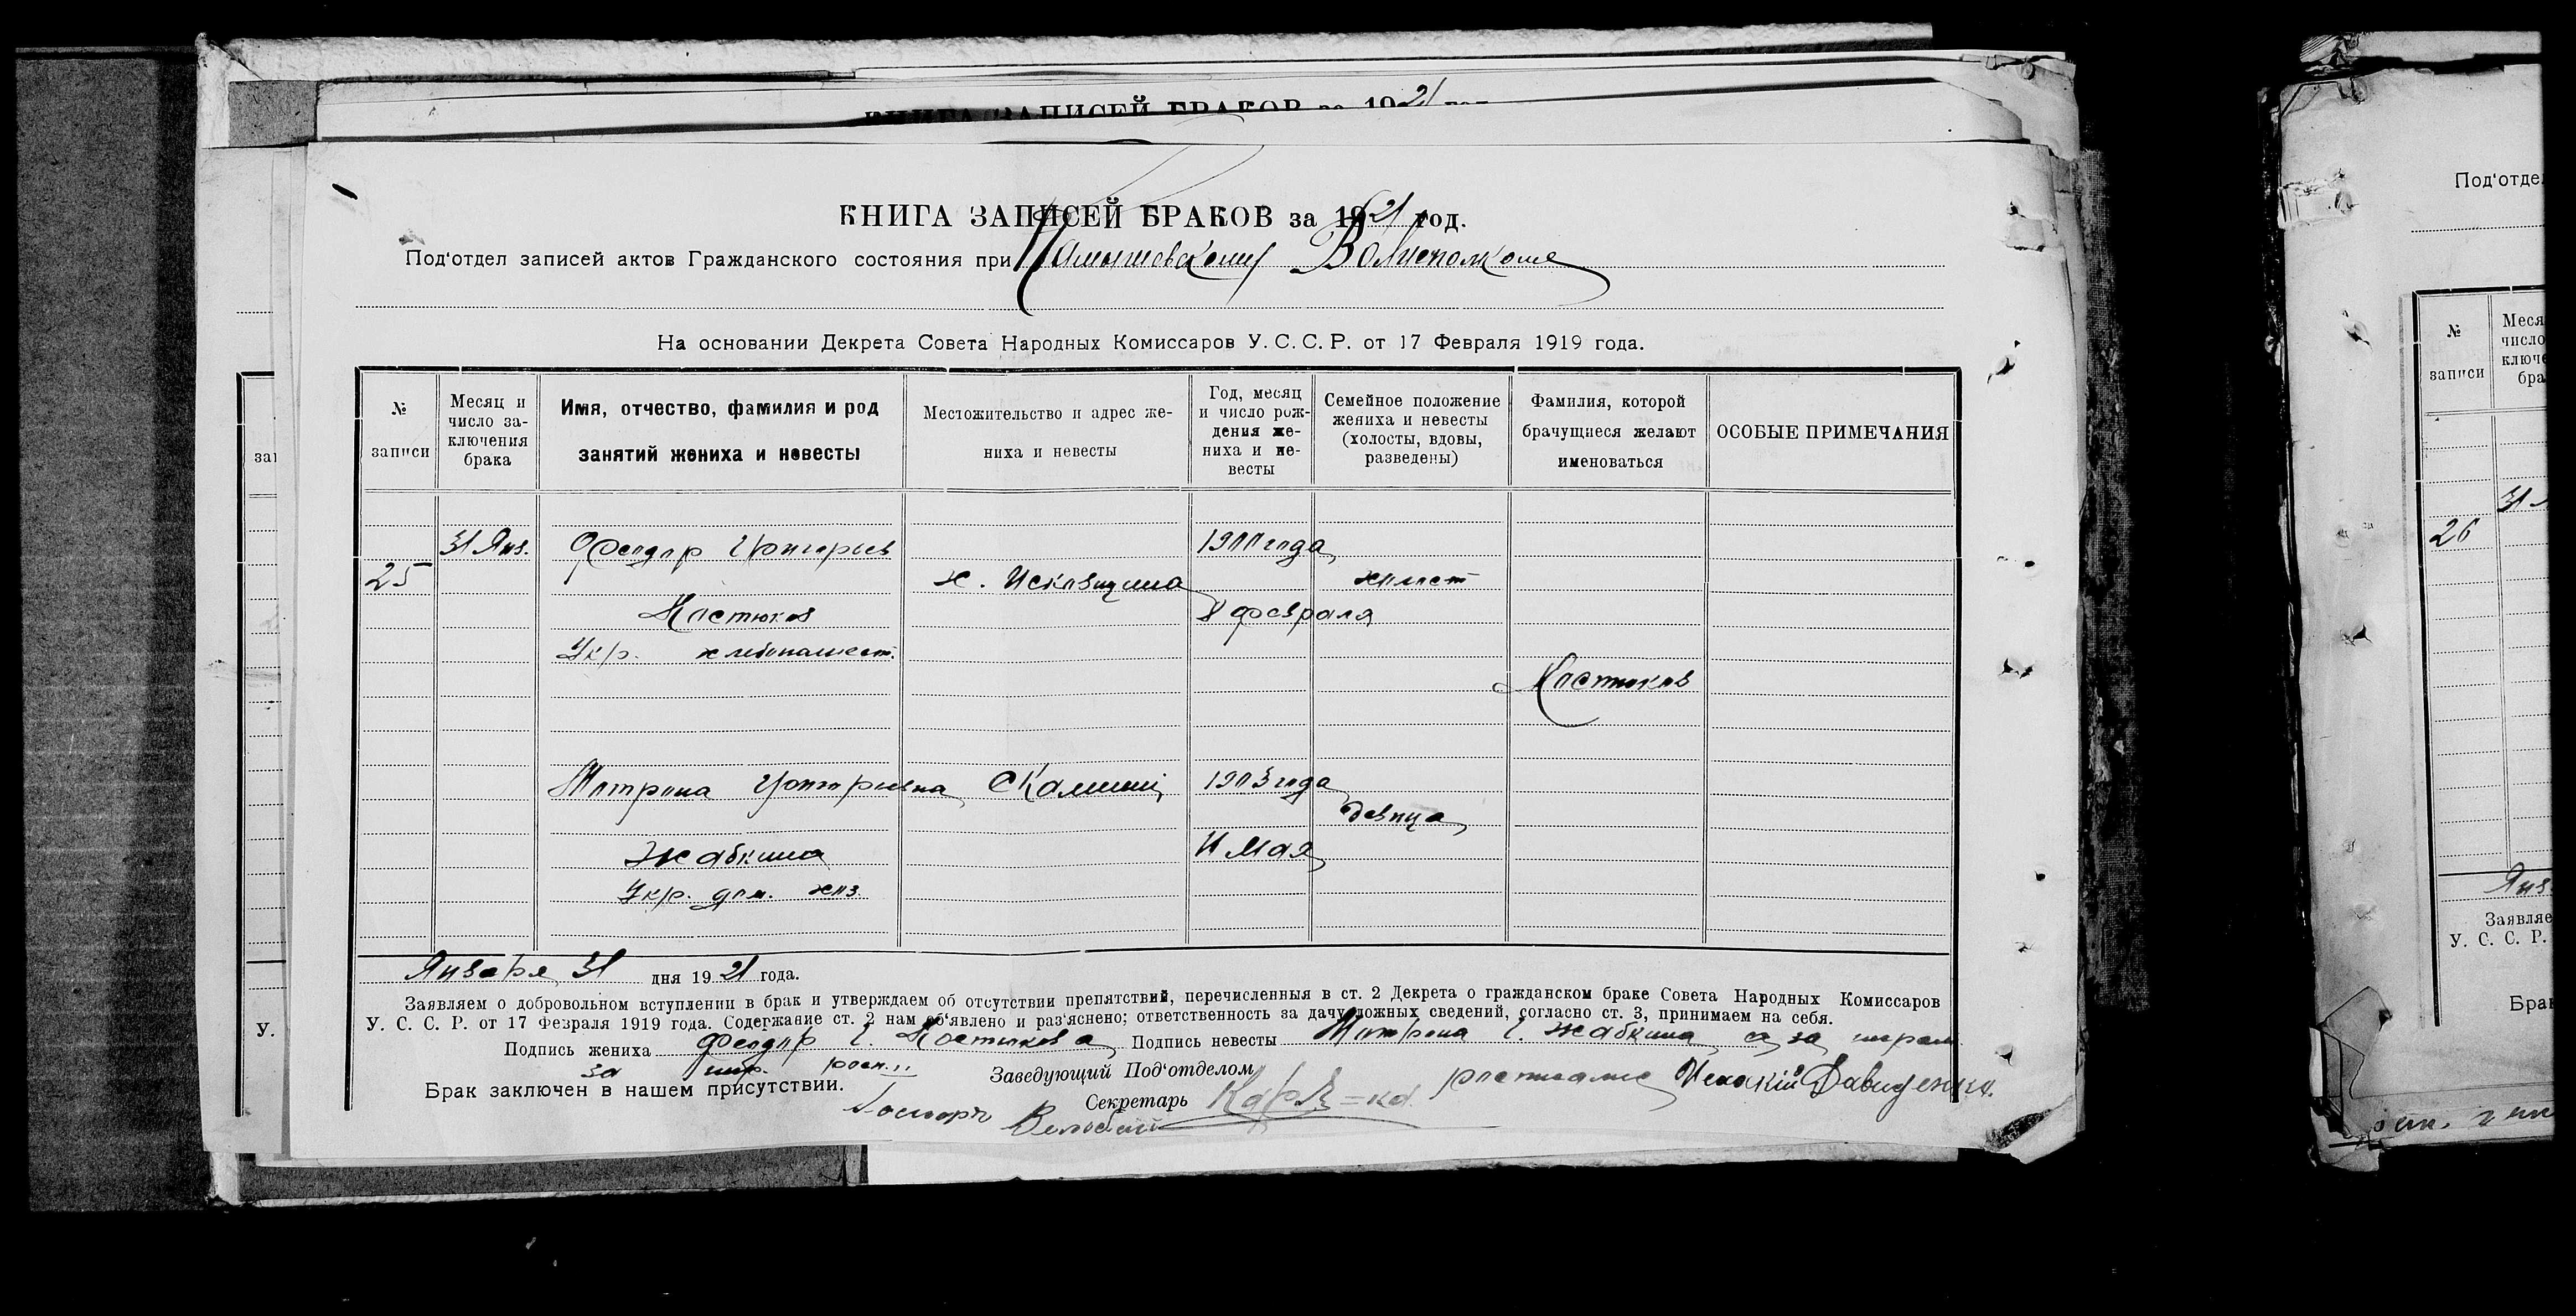 КНИГА ЗАПИСЕЙ БРАКОВ за 1921 год.
КНИГА ЗАПИСЕЙ БРАКОВ за 1921 год.
Под'отдел записей актов Гражданского состояния при Волисполкоме
На основании Декрета Совета Народных Комиссаров У. С. С. Р. от 17 Февраля 1919 года.
№ записи
Месяц и число заключения брака
Имя, отчество, фамилия и род занятий жениха и невесты
Местожительство и адрес жениха и невесты
Год, месяц и число рождения жениха и невесты
Семейное положение жениха и невесты (холосты, вдовы, разведены)
Фамилия, которой брачущиеся желают именоваться
ОСОБЫЕ ПРИМЕЧАНИЯ
31 Янв. Феодор Григорьев 1900 года
25 х. Исковщина холост
Костюков 8 февраля
Укр. хлебопашест.
Костюков
Матрона Григорьевна 1903 года
девица
Жабкина 11 мая
Укр. дом. хоз.
Января 31 дня 1921 года.
Заявляем о добровольном вступлении в брак и утверждаем об отсутствии препятствий, перечисленныя в ст. 2 Декрета о гражданском браке Совета Народных Комиссаров
У. С. С. Р. от 17 Февраля 1919 года. Содержание ст. 2 нам об'явлено и раз'яснено; ответственность за дачу ложных сведений, согласно ст. 3, принимаем на себя.
Подпись жениха Феодор Г. Костюков а Подпись невесты Матрона Г. Жабкина, а за
за росп. Заведующий Под'отделом
Брак заключен в нашем присутствии.
Секретарь
Давиденко.
Под'отдел
№ записи
26
31
Янв.
У. С. С. Р.